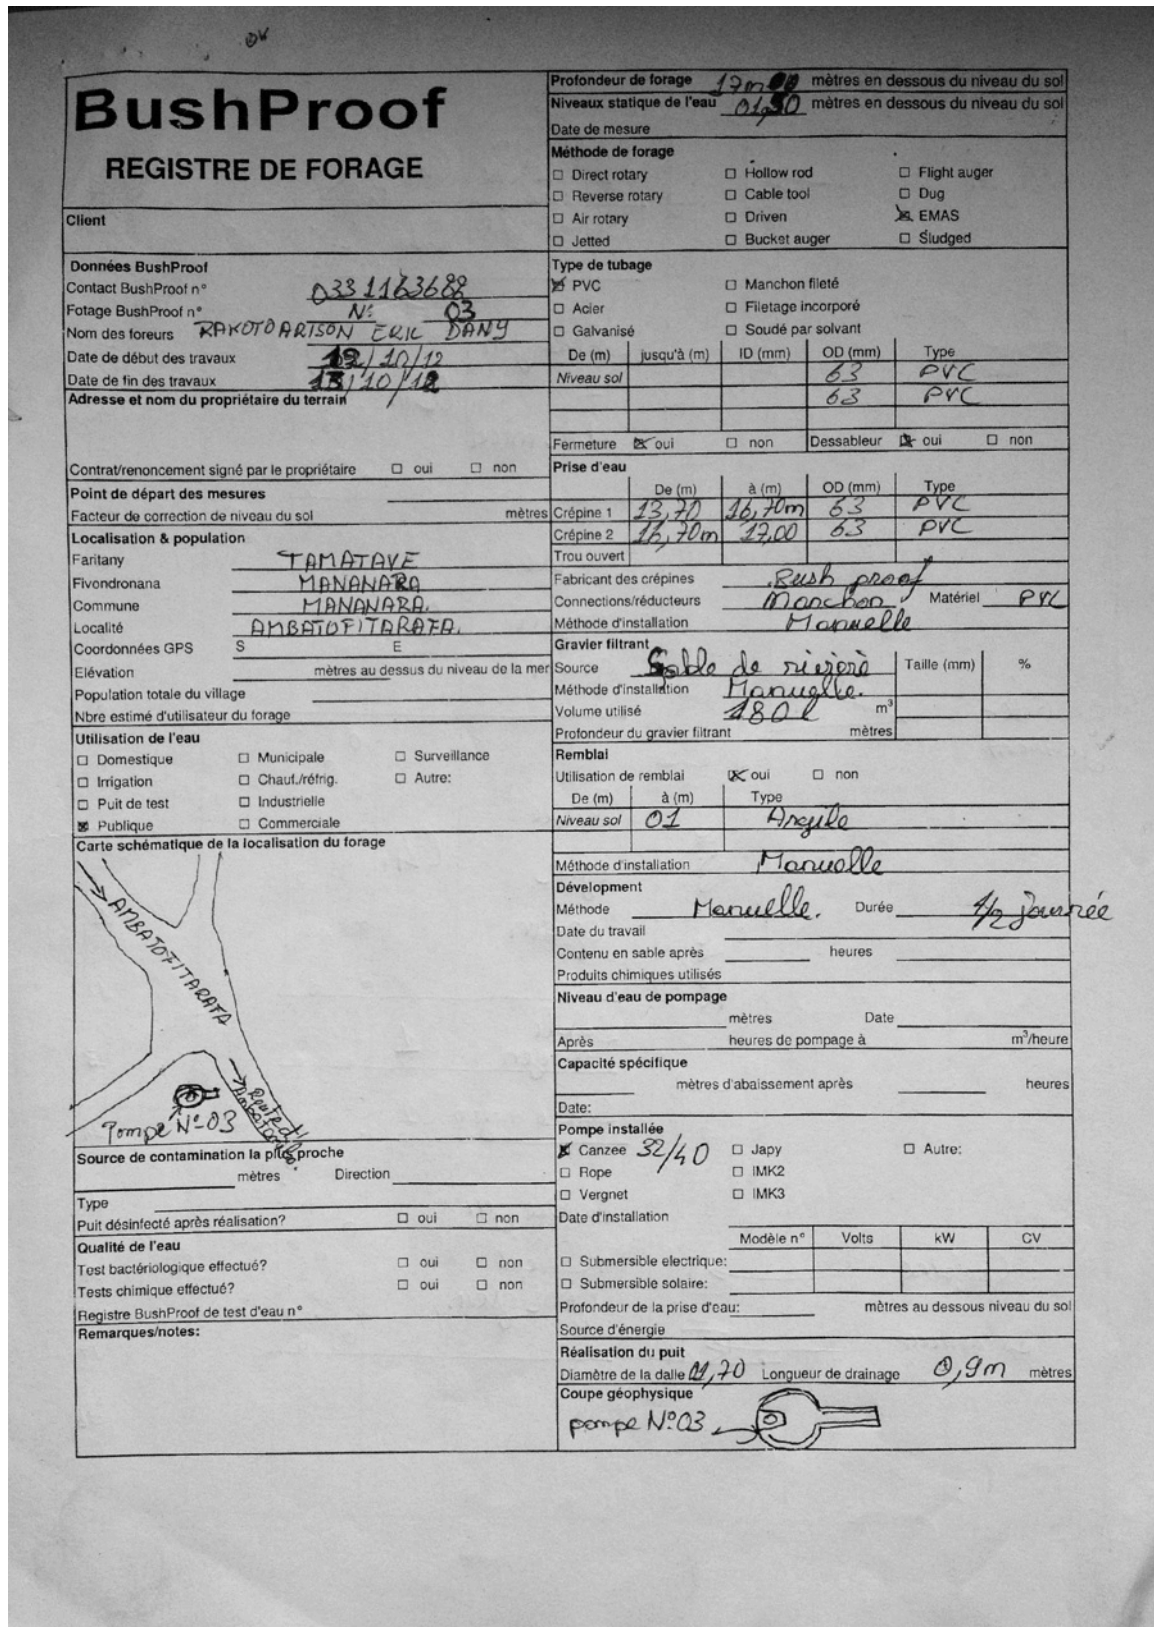 OK
BushProof
REGISTRE DE FORAGE
Client
Données BushProof
Contact BushProof n° 0331163688
Fotage BushProof n° N° 03
Nom des foreurs RAKOTOARISON ERIC DANY
Date de début des travaux 12/10/12
Date de fin des travaux 13/10/12
Adresse et nom du propriétaire du terrain
Contrat/renoncement signé par le propriétaire ☐ oui ☐ non
Point de départ des mesures
Facteur de correction de niveau du sol mètres
Localisation & population
Faritany TAMATAVE
Fivondronana MANANARA
Commune MANANARA.
Localité AMBATOFITARAFA.
Coordonnées GPS S E
Elévation mètres au dessus du niveau de la mer
Population totale du village
Nbre estimé d'utilisateur du forage
Utilisation de l'eau
☐ Domestique ☐ Municipale ☐ Surveillance
☐ Irrigation ☐ Chauf./réfrig. ☐ Autre:
☐ Puit de test ☐ Industrielle
☒ Publique ☐ Commerciale
Carte schématique de la localisation du forage
AMBATOFITARAFA
Route d'
Pompe N°03
Source de contamination la plus proche
mètres Direction
Type
Puit désinfecté après réalisation? ☐ oui ☐ non
Qualité de l'eau
Test bactériologique effectué? ☐ oui ☐ non
Tests chimique effectué? ☐ oui ☐ non
Registre BushProof de test d'eau n°
Remarques/notes:
Profondeur de forage 17m00 mètres en dessous du niveau du sol
Niveaux statique de l'eau 01,50 mètres en dessous du niveau du sol
Date de mesure
Méthode de forage
☐ Direct rotary ☐ Hollow rod ☐ Flight auger
☐ Reverse rotary ☐ Cable tool ☐ Dug
☐ Air rotary ☐ Driven ☒ EMAS
☐ Jetted ☐ Bucket auger ☐ Sludged
Type de tubage
☒ PVC ☐ Manchon fileté
☐ Acier ☐ Filetage incorporé
☐ Galvanisé ☐ Soudé par solvant
De (m) jusqu'à (m) ID (mm) OD (mm) Type
Niveau sol 63 PVC
63 PVC
Fermeture ☒ oui ☐ non Dessableur ☒ oui ☐ non
Prise d'eau
De (m) à (m) OD (mm) Type
Crépine 1 13,70 16,70m 63 PVC
Crépine 2 16,70m 17,00 63 PVC
Trou ouvert
Fabricant des crépines Bush proof
Connections/réducteurs Manchon Matériel PVC
Méthode d'installation Manuelle
Gravier filtrant
Source Sable de rizière Taille (mm) %
Méthode d'installation Manuelle.
Volume utilisé 180l m³
Profondeur du gravier filtrant mètres
Remblai
Utilisation de remblai ☒ oui ☐ non
De (m) à (m) Type
Niveau sol 01 Argile
Méthode d'installation Manuelle
Dévelopment
Méthode Manuelle. Durée 1/2 journée
Date du travail
Contenu en sable après heures
Produits chimiques utilisés
Niveau d'eau de pompage
mètres Date
Après heures de pompage à m³/heure
Capacité spécifique
mètres d'abaissement après heures
Date:
Pompe installée
☒ Canzee 32/40 ☐ Japy ☐ Autre:
☐ Rope ☐ IMK2
☐ Vergnet ☐ IMK3
Date d'installation
Modèle n° Volts kW CV
☐ Submersible electrique:
☐ Submersible solaire:
Profondeur de la prise d'eau: mètres au dessous niveau du sol
Source d'énergie
Réalisation du puit
Diamètre de la dalle 01,70 Longueur de drainage 0,9m mètres
Coupe géophysique
pompe N°03